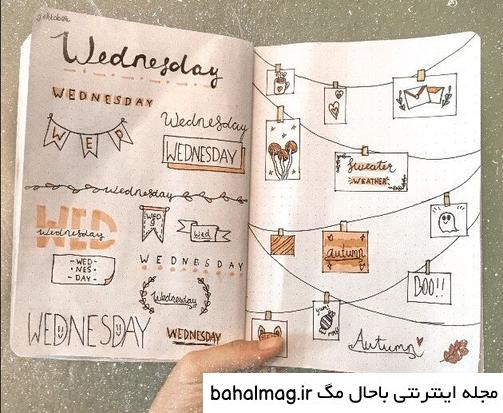 Wednesday
WEDNESDAY
WED
Wednesday
WEDNESDAY
Wednesday
WED
Wednesday
WED
Wed
-WED-
·NES·
DAY-
WEDNESDAY
Wednesday
WEDNESDAY
WEDNESDAY
Sweater
WEATHER
autumn
BOO!!
Autumn
مجله اینترنتی باحال مگ bahalmag.ir